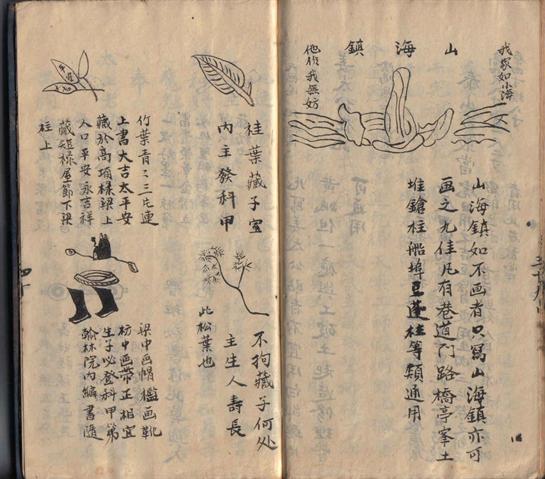 我家如山海
山海鎮
他作我無妨
山海鎮如不画者只寫山海鎮亦可
画之尤佳凡有巷道門路橋亭峯土
堆鎗柱船埠豆蓬柱等類通用
桂葉藏于室
内主發科甲
竹葉青〻三片連
上書大吉太平安
藏於高頂樑上
人口平安永吉祥
藏短樑屋下梁
柱上
不拘藏于何处
主生人壽長
此松葉也
梁中画帽檻画靴
枋中画帶正相宜
生子必登科甲第
翰林院内編書隨